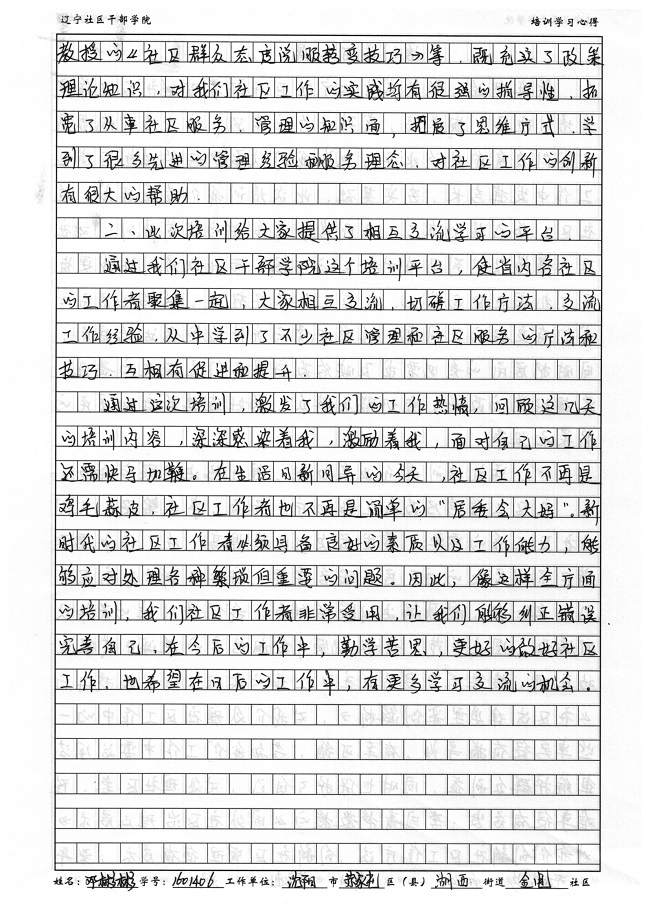 辽宁社区干部学院 培训学习心得
教授的《社区群众态度说服转变技巧》等,既充实了政策
理论知识,对我们社区工作的实践均有很强的指导性,拓
宽了从事社区服务、管理的知识面,拓展了思维方式,学
到了很多先进的管理经验和服务理念,对社区工作的创新
有很大的帮助.
二、此次培训给大家提供了相互交流学习的平台.
通过我们社区干部学院这个培训平台,使省内各社区
的工作者聚集一起,大家相互交流,切磋工作方法,交流
工作经验,从中学到了不少社区管理和社区服务的方法和
技巧,互相有促进和提升.
通过这次培训,激发了我们的工作热情,回顾这几天
的培训内容,深深感染着我,激励着我,面对自己的工作
还需快马加鞭。在生活日新月异的今天,社区工作不再是
鸡毛蒜皮,社区工作者也不再是简单的"居委会大妈"。新
时代的社区工作者必须具备良好的素质以及工作能力,能
够应对处理各种繁琐但重要的问题。因此,像这样全方面
的培训,我们社区工作者非常受用,让我们能够纠正错误
完善自己,在今后的工作中,勤学苦思,更好的做好社区
工作,也希望在日后的工作中,有更多学习交流的机会。
姓名:彬彬 学号:1601406 工作单位:沈阳 市 苏家屯 区(县) 湖西 街道 社区